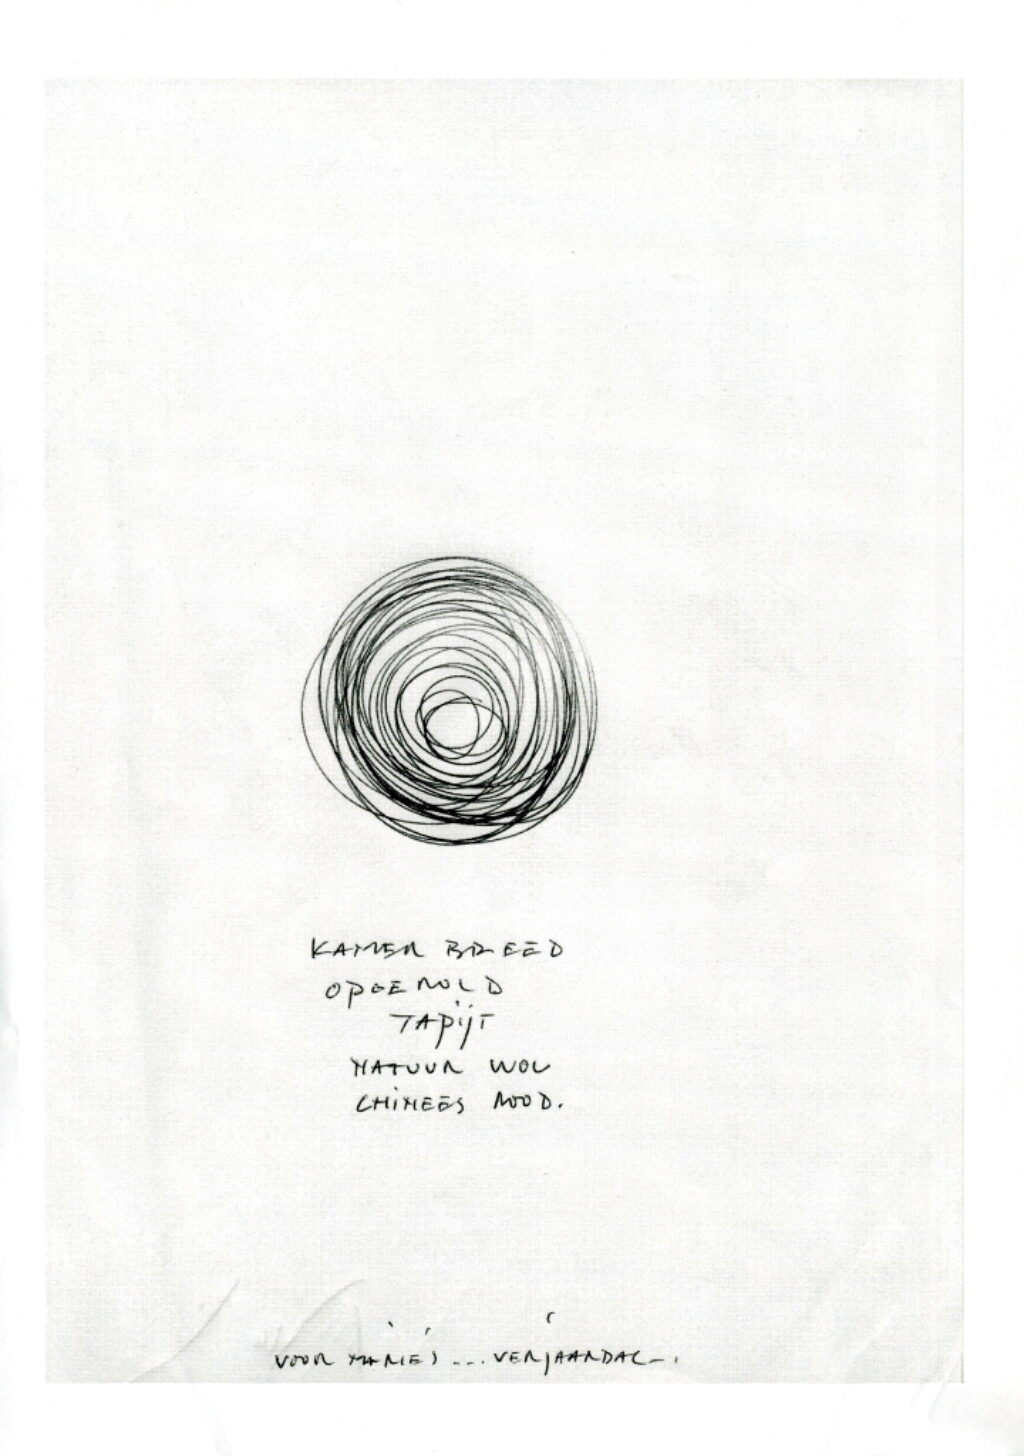 KAMER BREED
OPGEROLD
TAPIJT
NATUUR WOL
CHINEES ROOD.
VOOR MARIE'S ... VERJAARDAG -.